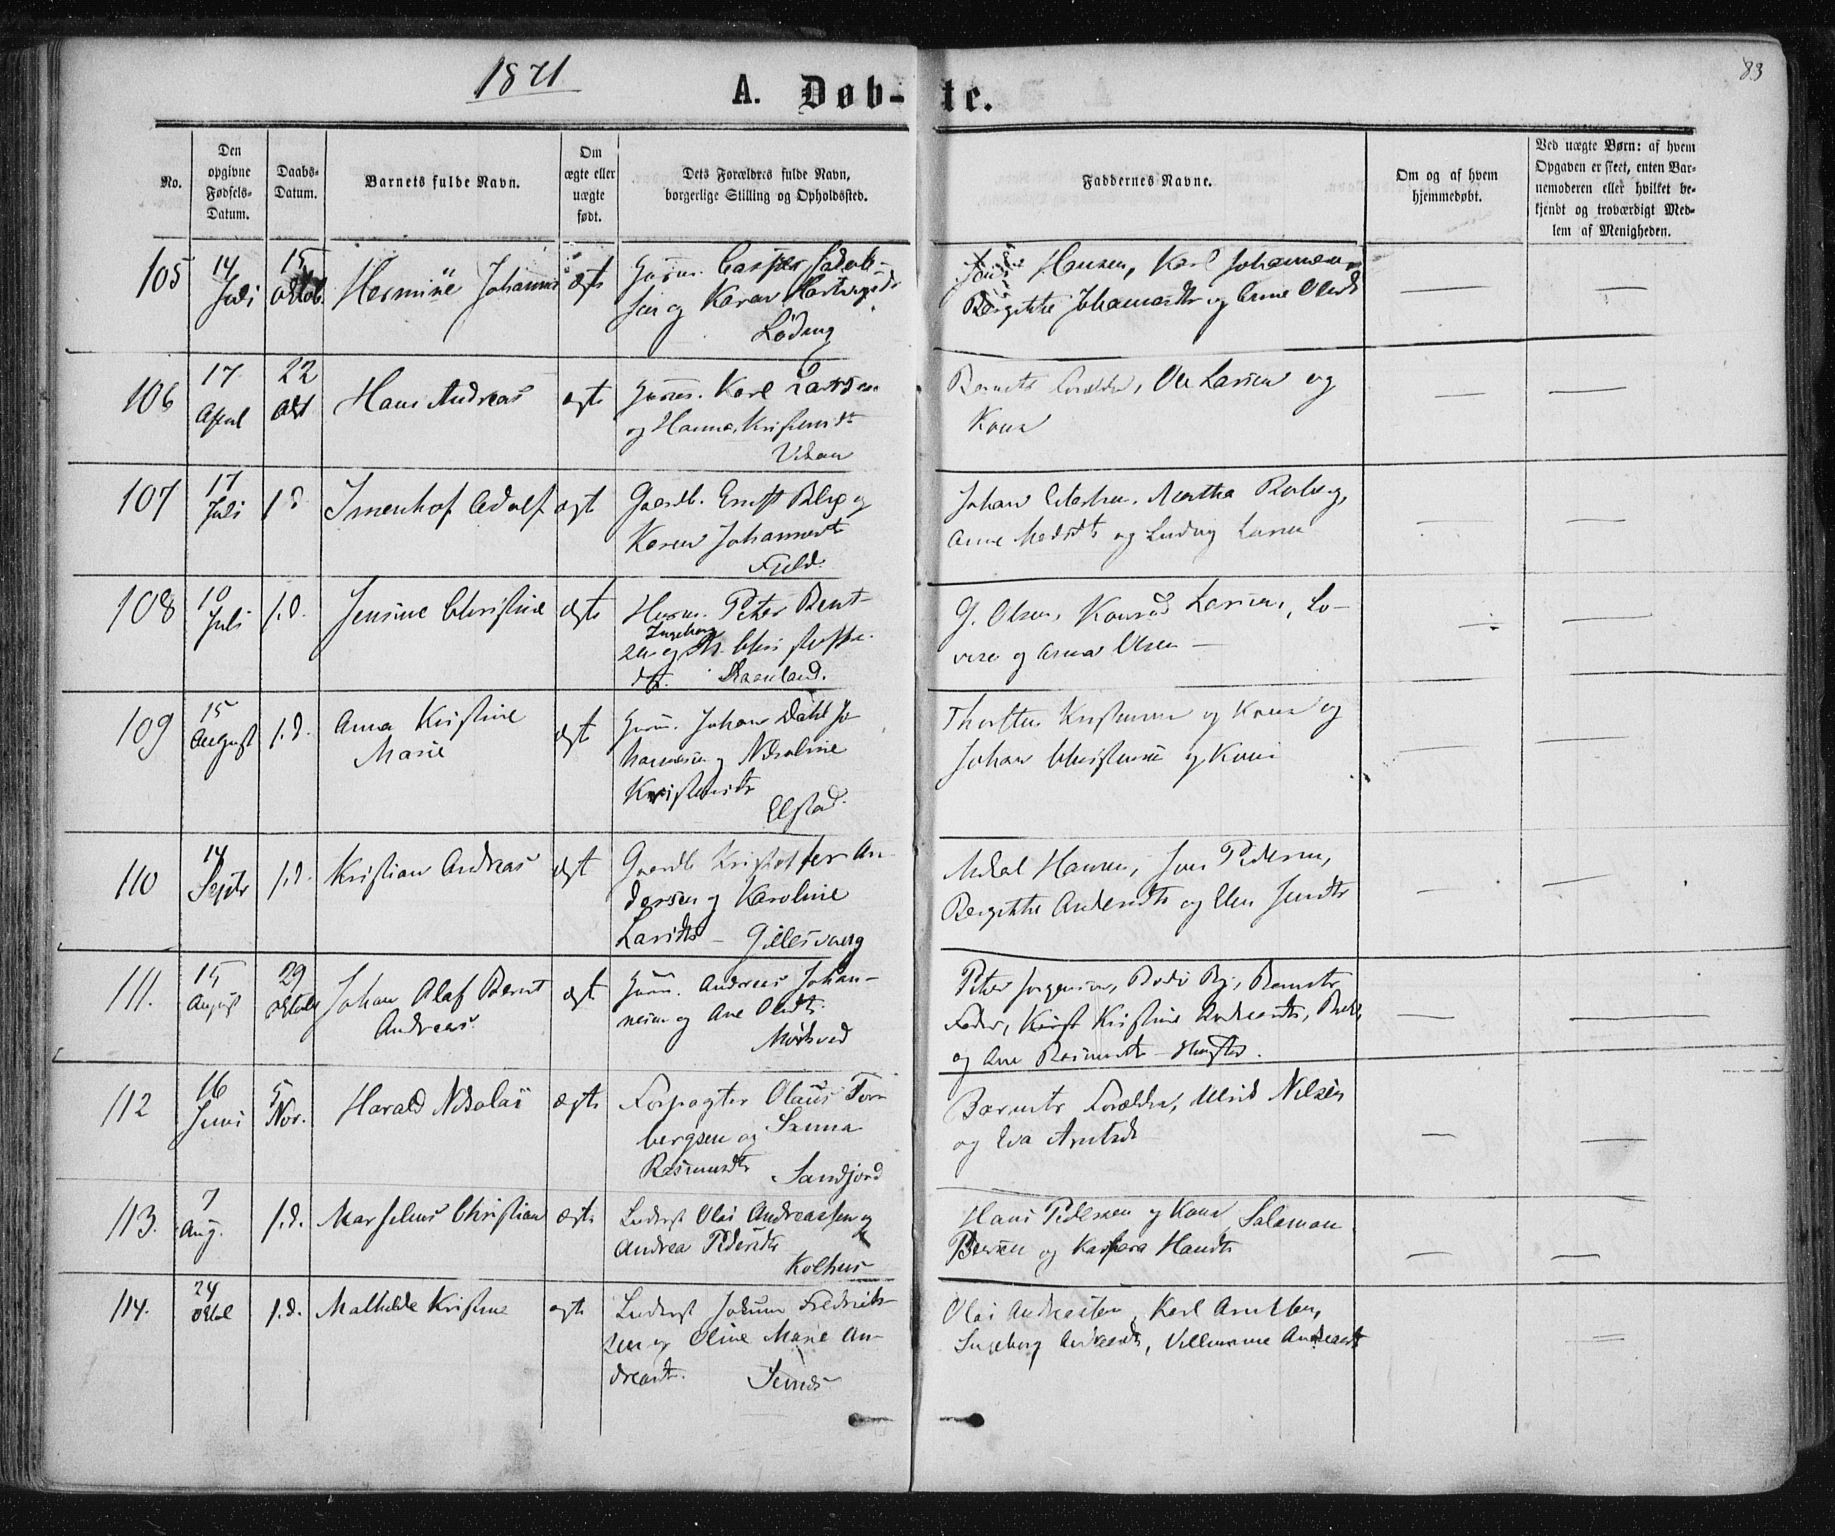 1871
A. Døb-te.
83
No.
Den opgivne Fødsels-Datum.
Daabs-Datum.
Barnets fulde Navn.
Om ægte eller uægte født.
Dets Forældres fulde Navn, borgerlige Stilling og Opholdssted.
Faddernes Navne.
Om og af hvem hjemmedøbt.
Ved uægte Børn: af hvem Opgaven er skeet, enten Barnemoderen eller hvilket bekjendt og troværdigt Medlem af Menigheden.
105 14 Juli 15 Oktob. Hermine Johanna ægte Huusm. Casper Jakob-
sen og Karen Hartvigsdt
Løding
Hansen, Karl Johannesen
Bergitte Johannesdt og Anne Olsdt
106 17 April 22 Okt Hans Andreas ægte Huusm. Karl Larsen
og Hanna Kristensdt
Vikan
Barnets Forældre, Ole Larsen og
Kone
107 17 Juli s.d. Imenhof Adolf ægt Gaardb. Ernst Blix og
Karen Johannesdt
Fjeld.
Johan, Martha
Anne Madsdt og Ludvig Larsen
108 10 Juli s.d. Jensine Christine ægte Huusm. Peter Bent-
zen og Ingeborg M. Christoffe-
dt. Skaanland.
G. Olsen, Konrad Larsen, Lo-
vise og Anna Olsen —
109 15 August s.d. Anna Kristine
Marie ægt Huusm. Johan Dahl Jo-
hannesen og Nikoline
Kristensdt
Elstad.
Thorsten Kristensen og Kone og
Johan Christensen og Kone
110 14 Septr s.d. Kristian Andreas ægt Gaardb Kristoffer An-
dersen og Karoline
Larsdt — Gillesvaag
Mikal Hansen, Jens Pedersen,
Bergitte Andersdt og Elen Jensdt
111. 15 August 29 Oktob Johan Olaf Bernt
Andreas. ægt Huusm. Andreas Johan-
nesen og Ane Olsdt.
Mørkved
Peter Jørgensen, Bodø By, Barnets
Fader, Kristine Andreasdt,
og Ane Rasmusdt —
112 16 Juni 5 Nov. Harald Nikolai ægte Forpagter Olaus Torn
bergsen og Sanna
Rasmusdt Sandjord
Barnets Forældre, Ulrik Nilsen
og Eva Arntsdt
113. 7 Aug. s.d. Marselius Christian ægte Inderst Olai Andreassen og
Andrea Pedersdt
Kolhus
Hans Pedersen og Kone Salamon
og Kaspara Hansdt
114. 24 Oktob s.d. Mathilde Kristine ægte Inderst Jakum Fredrik-
zen og Oline Marie An-
dreasdt.
Olai Andreassen, Karl Arntsen,
Ingeborg Andreasdt, Villumine Andreasdt